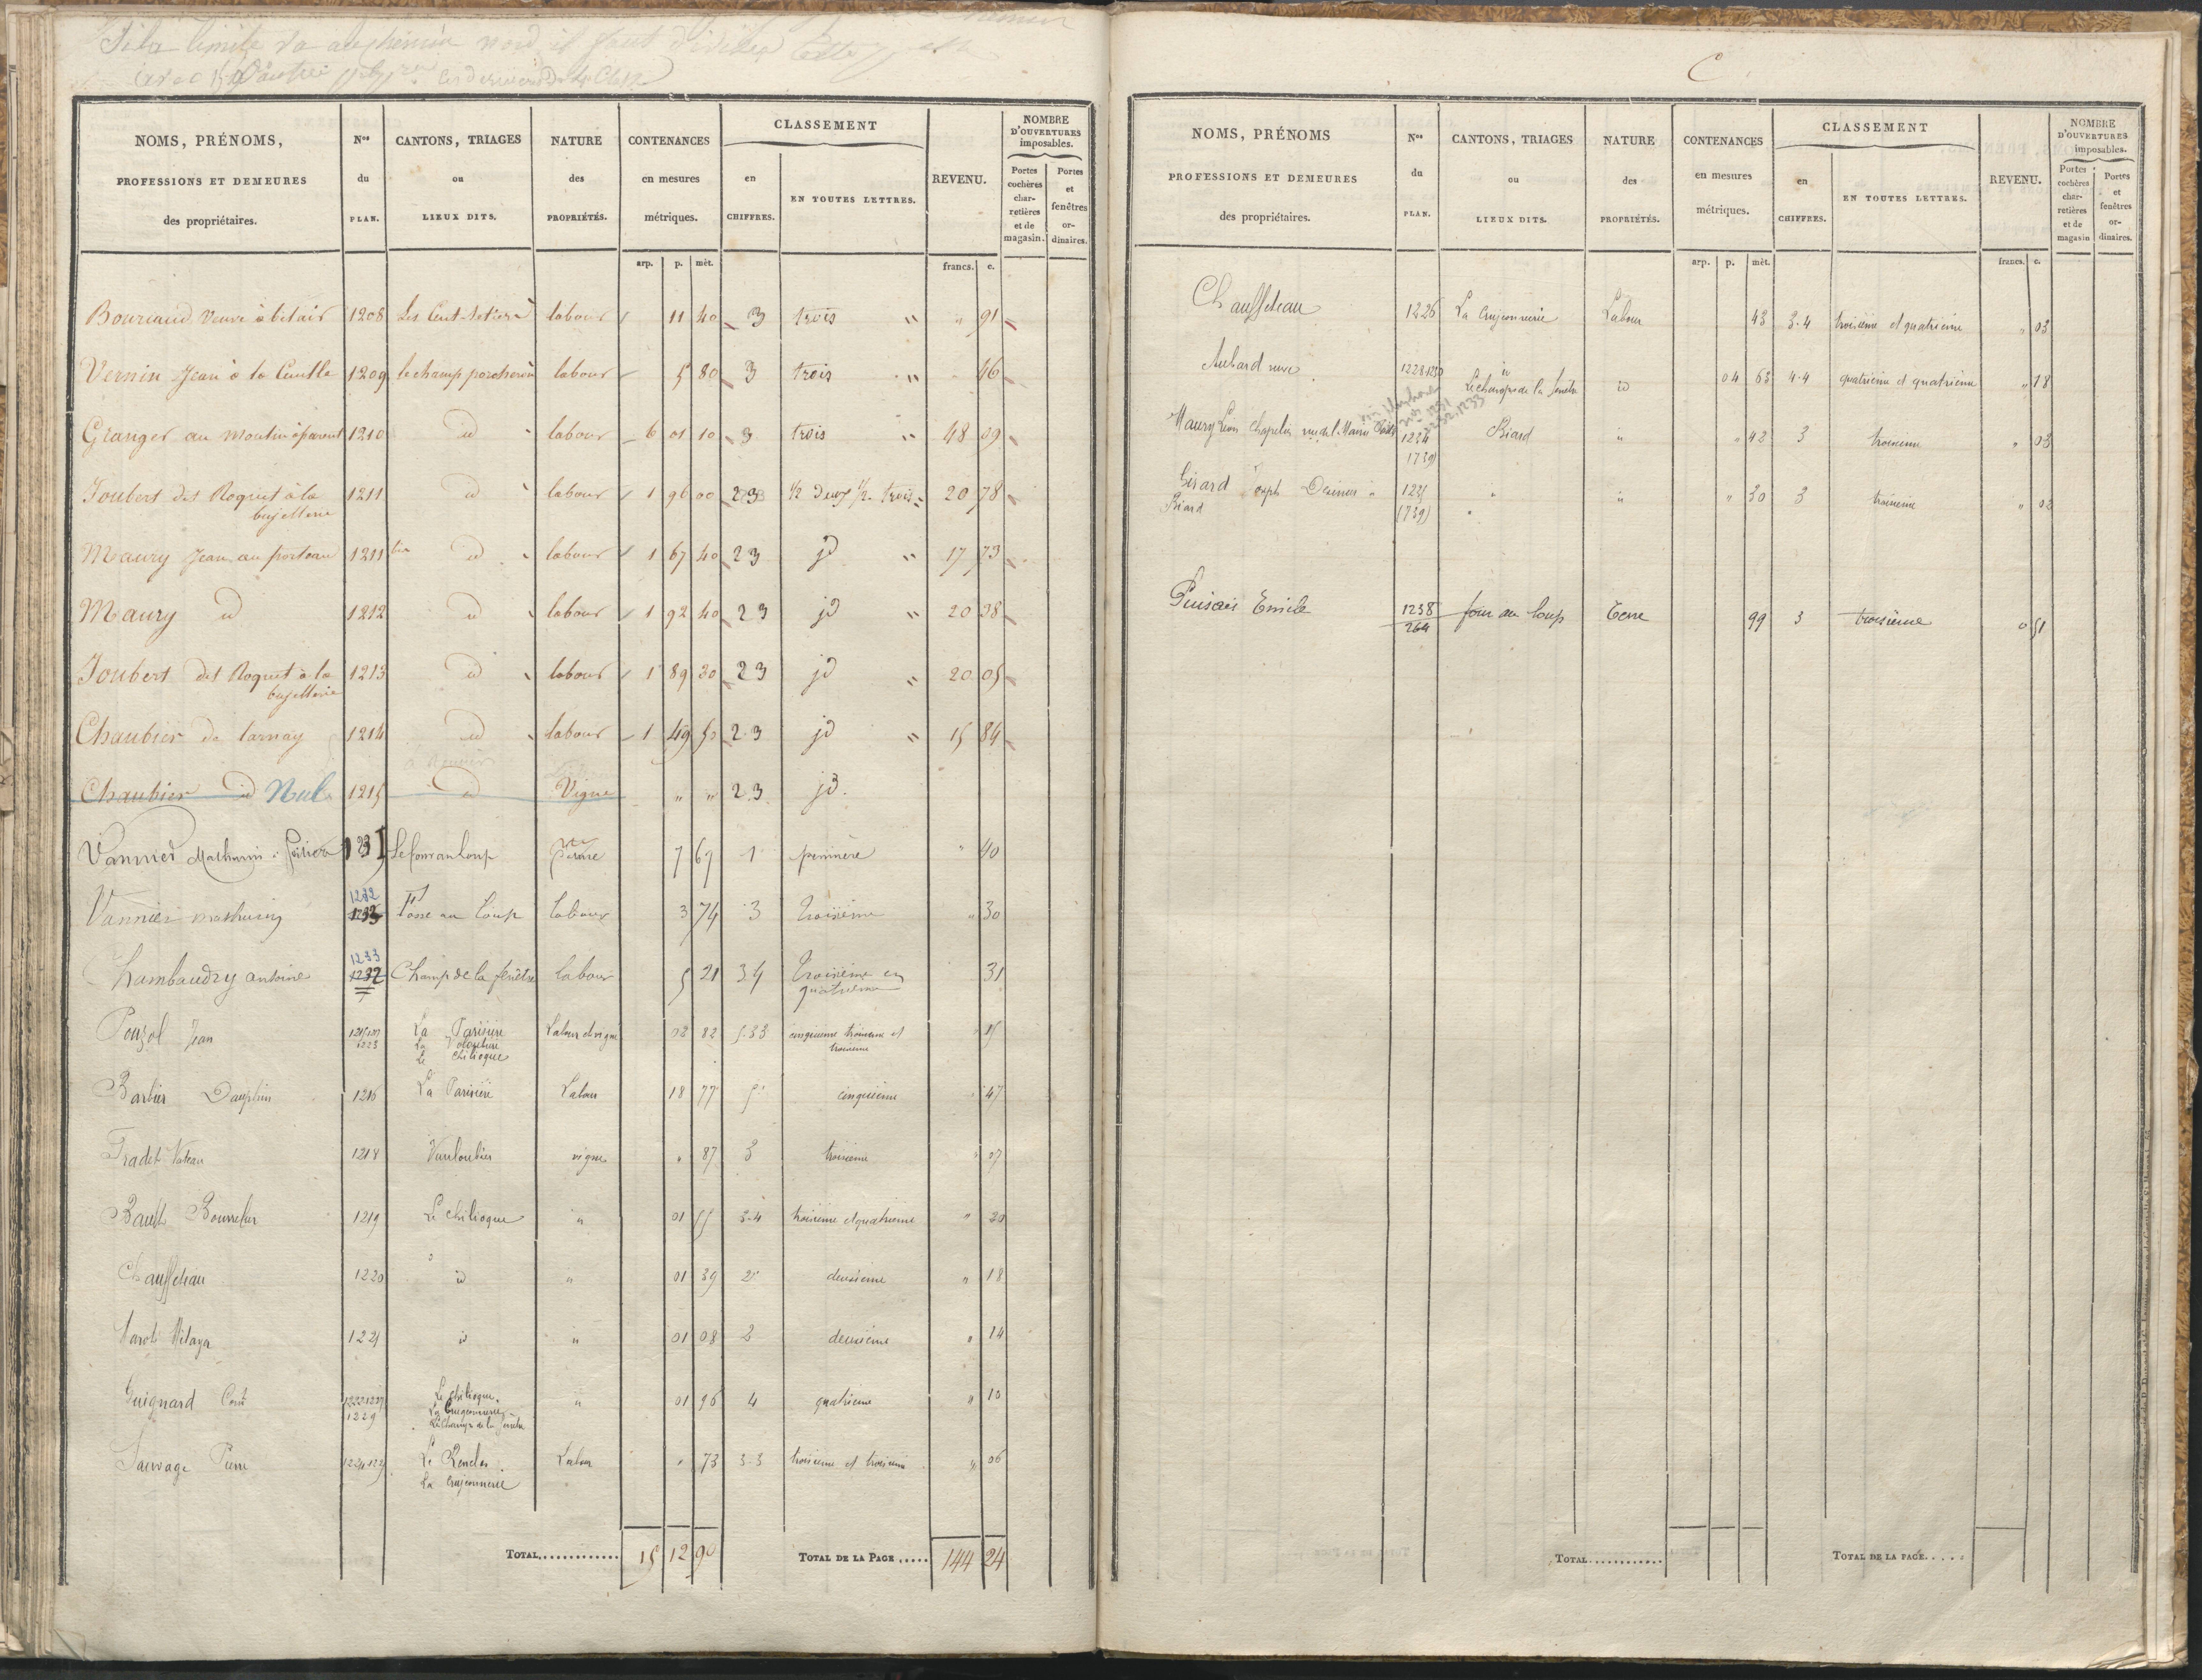 NOMS, PRÉNOMS, PROFESSIONS ET DEMEURES des propriétaires. | Nos du PLAN. | CANTONS, TRIAGES ou LIEUX DITS. | NATURE des PROPRIÉTÉS. | CONTENANCES en mesures métriques. | CLASSEMENT en CHIFFRES. | EN TOUTES LETTRES. | REVENU. | NOMBRE D'OUVERTURES imposables. Portes cochères charretières et de magasin. | Portes et fenêtres ordinaires.
arp. p. mèt. francs. c.
Bouriaud veuve à bélair 1208 Les Cent-Setiers labour 11 40 3 trois " " 91
Vernin Jean à la Cueille 1209 le champ porcheron labour 5 80 3 trois " 46
Granger au moulin àparent 1210 id labour 6 01 10 3 trois " 48 09
Joubert des Roquet à la bujetterie 1211 id labour 1 96 00 23 1/2 deux 1/2 trois 20 78
Maury Jean au porteau 1211 bis id labour 1 67 40 23 jd " 17 73
Maury id 1212 id labour 1 92 40 23 jd " 20 38
Joubert des Roquet à la bujetterie 1213 id labour 1 89 30 23 jd " 20 05
Chaubier de larnay 1214 id labour 1 49 50 2.3 jd " 15 84
Chaubier id Nul 1215 id Vigne " " 2.3 jd.
Vannier Mathurin à Poitiers 1231 Le four au Loup 7 67 1 première " 40
Vannier Mathurin 1232 Fosse au Loup Labour 3 74 3 Troisième " 30
Lambaudry antoine 1233 1232 Champ de la fenêtre labour 5 21 34 troisième en quatrième 31
Pouzol Jean 1223 La Parisière Le Chilioque Labour et vigne 03 82 5.33 cinquième troisième et troisième 15
Barbier Dauphin 1216 La Parisière Labour 18 77 5 cinquième 47
Tradet 1218 Vauloubier vigne " 87 3 troisième " 07
Bault Bourrelier 1219 Le Chilioque " 01 55 3-4 troisième et quatrième " 20
Chauffeteau 1220 id " 01 39 2 deuxième " 18
1221 id " 01 08 2 deuxième " 14
Guignard 1222 1227 1229 Le Chilioque La Crujeonnerie Le Champ de la fenêtre " 01 96 4 quatrième " 10
Sauvage Pierre Le Renclos La Crujeonnerie Labour " 73 3-3 troisième et troisième " 06
TOTAL............. 15 12 90 TOTAL DE LA PAGE..... 144 24
C
NOMS, PRÉNOMS PROFESSIONS ET DEMEURES des propriétaires. | Nos du PLAN. | CANTONS, TRIAGES ou LIEUX DITS. | NATURE des PROPRIÉTÉS. | CONTENANCES en mesures métriques. | CLASSEMENT en CHIFFRES. | EN TOUTES LETTRES. | REVENU. | NOMBRE D'OUVERTURES imposables. Portes cochères charretières et de magasin | Portes et fenêtres ordinaires.
arp. p. mèt. francs. c.
Chauffeteau 1226 La Crujeonnerie Labour 43 3.4 troisième et quatrième " 03
Aubard veuve 1228.1230 id Le Champs de la fenêtre id 04 63 4.4 quatrième et quatrième " 18
nos 1231 1232.1233
Maury Léon Chapelier rue de la Mairie 1234 Biard " " 42 3 troisième " 03
1739
Girard Biard (739) " " " 30 3 troisième " 02
Puisais Emile 1238 264 four au loup Terre 99 3 troisième 0 51
TOTAL............ TOTAL DE LA PAGE.....